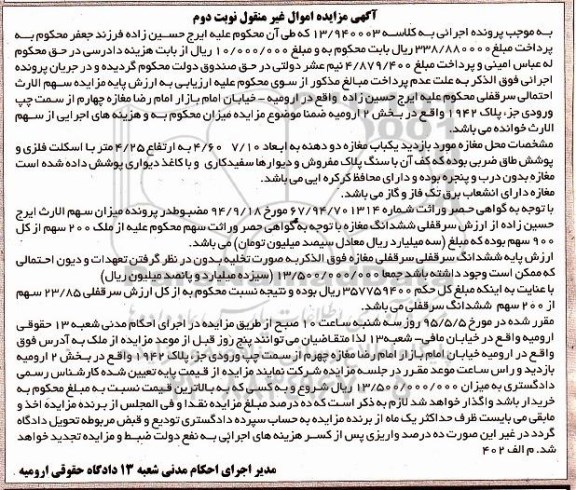 آگهی مزایده اموال غیر منقول نوبت دوم
به موجب پرونده اجرائی به کلاسه ۱۳/۹۴۰۰۰۳ که طی آن محکوم علیه ایرج حسین زاده فرزند جعفر محکوم به
پرداخت مبلغ ۳۳۸/۸۸۰۰۰۰ ریال بابت محکوم به و مبلغ ۱۰/۰۰۰/۰۰۰ ریال از بابت هزینه دادرسی در حق محکوم
له عباس امینی و پرداخت مبلغ ۴/۸۷۹/۴۰۰ نیم عشر دولتی در حق صندوق دولت محکوم گردیده و در جریان پرونده
اجرائی فوق الذکر به علت عدم پرداخت مبالغ مذکور از سوی محکوم علیه ارزیابی به ارزش پایه مزایده سهم الارث
احتمالی سرقفلی محکوم علیه ایرج حسین زاده واقع در ارومیه - خیابان امام بازار امام رضا مغازه چهارم از سمت چپ
ورودی جزء پلاک ۱۹۴۲ واقع در بخش ۲ ارومیه ضمنا موضوع مزایده میزان محکوم به و هزینه های اجرایی از سهم
الارث خوانده می باشد.
مشخصات محل مغازه مورد بازدید یکباب مغازه دو دهنه به ابعاد ۷/۱۰ ۴/۶۰ به ارتفاع ۴/۲۵ متر با اسکلت فلزی و
پوشش طاق ضربی بوده که کف آن با سنگ پلاک مفروش و دیوارها سفیدکاری و با کاغذ دیواری پوشش داده شده است
مغازه بدون درب و پنجره بوده و دارای محافظ کرکره ایی می باشد.
مغازه دارای انشعاب برق تک فاز و گاز می باشد.
با توجه به گواهی حصر وراثت شماره ۶۷/۹۴/۷۰۱۳۱۴ مورخ ۹۴/۹/۱۸ مضبوط در پرونده میزان سهم الارث ایرج
حسین زاده از ارزش سرقفلی ششدانگ مغازه با توجه به گواهی حصر وراثت سهم محکوم علیه از ملک ۲۰۰ سهم از کل
۹۰۰ سهم بوده که مبلغ (سه میلیارد ریال معادل سیصد میلیون تومان) می باشد.
ارزش پایه ششدانگ سرقفلی سرقفلی مغازه فوق الذکر به صورت تخلیه بدون در نظر گرفتن تعهدات و دیون احتمالی
که ممکن است وجود داشته باشد جمعا ۱۳/۵۰۰/۰۰۰/۰۰۰ (سیزده میلیارد و پانصد میلیون ریال)
با عنایت به اینکه مبلغ کل حکم ۳۵۷۷۵۹۴۰۰ ریال بوده و نتیجه نسبت محکوم به از کل ارزش سرقفلی ۲۳/۸۵ سهم
از ۲۰۰ سهم ششدانگ سرقفلی می باشد.
مقرر شده در مورخ ۹۵/۵/۵ روز سه شنبه ساعت ۱۰ صبح از طریق مزایده در اجرای احکام مدنی شعبه ۱۳ حقوقی
ارومیه واقع در خیابان مافی- شعبه ۱۳ لذا متقاضیان می توانند پنج روز قبل از موعد مزایده از ملک به آدرس فوق
واقع در ارومیه خیابان امام بازار امام رضا مغازه چهرم از سمت چپ ورودی جزء پلاک ۱۹۴۲ واقع در بخش ۲ ارومیه
بازدید و راس ساعت موعد مقرر در جلسه مزایده شرکت نمایند مزایده از قیمت پایه تعیین شده کارشناس رسمی
دادگستری به میزان ۱۳/۵۰۰/۰۰۰/۰۰۰ ریال شروع و به کسی که به بالاترین قیمت نسبت به مبلغ محکوم به
خریدار باشد واگذار خواهد شد لازم به ذکر است که ده درصد مبلغ مزایده نقدا و فی المجلس از برنده مزایده اخذ و
مابقی می بایست ظرف حداکثر یک ماه از برنده مزایده به حساب سپرده دادگستری تودیع و قبض مربوطه تحویل دادگاه
گردد در غیر این صورت ده درصد واریزی پس از کسر هزینه های اجرائی به نفع دولت ضبط و مزایده تجدید خواهد
شد. م الف ۴۰۲
مدیر اجرای احکام مدنی شعبه ۱۳ دادگاه حقوقی ارومیه